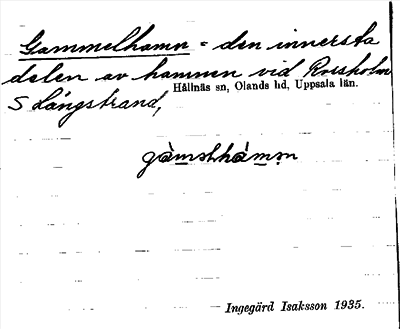 Gammelhamn = den innersta
delen av hamnen vid Rossholm
Hållnäs sn, Olands hd, Uppsala län.
S Långstrand,
Ingegärd Isaksson 1935.